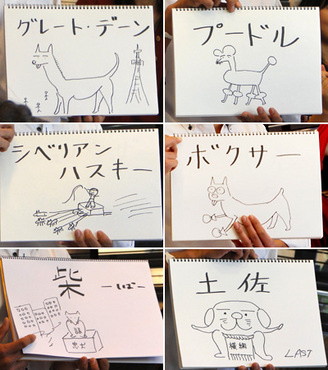 グレート・デーン
プードル
シベリアン
ハスキー
ボクサー
柴
－しば－
忠犬
土佐
横綱
LAST